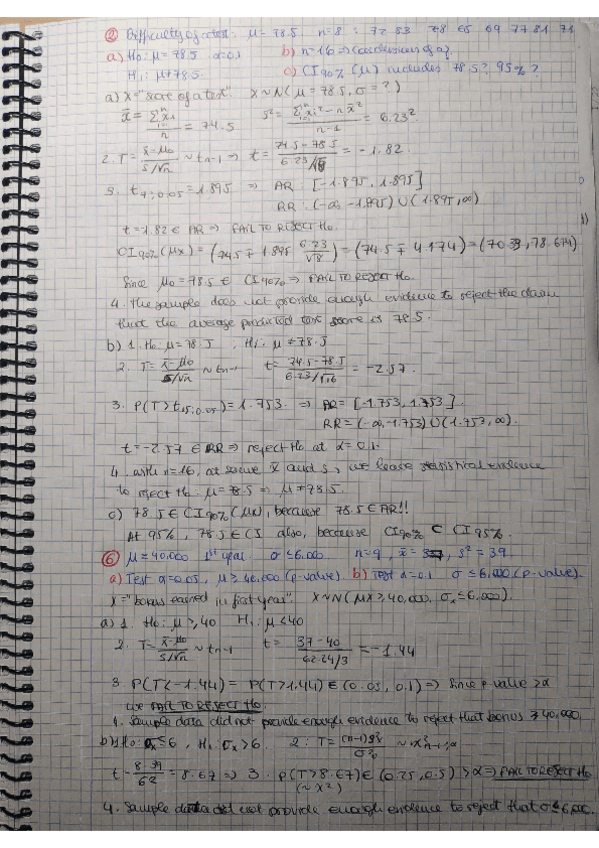 ② Difficulty of a test: μ = 78.5 n=8 : 72 83 78 65 69 77 81 71
a) H₀: μ = 78.5 α=0.1 b) n=16 ⇒ Conclusions of a?
H₁: μ≠78.5 c) CI90% (μ) includes 78.5? 95%?
a) X="score of a test" X∼N(μ = 78.5, σ = ?)
x̄ = Σxᵢ/n = 74.5 s² = (Σxᵢ² - n x̄²)/(n-1) = 6.23²
2. T = (x̄-μ₀)/(s/√n) ∼ tn-1 ⇒ t = (74.5-78.5)/(6.23/√8) = -1.82
3. t₇;0.05 = 1.895 ⇒ AR: [-1.895, 1.895]
RR: (-∞, -1.895) ∪ (1.895, ∞)
t=1.82 ∈ AR ⇒ FAIL TO REJECT H₀.
CI90% (μx) = (74.5 ∓ 1.895 6.23/√8) = (74.5 ∓ 4.174) = (70.33, 78.674)
Since μ₀ = 78.5 ∈ CI90% ⇒ FAIL TO REJECT H₀
4. The sample does not provide enough evidence to reject the claim
that the average predicted test score is 78.5.
b) 1. H₀: μ = 78.5 , H₁: μ ≠ 78.5
2. T = (x̄-μ₀)/(s/√n) ∼ tn-1 t = (74.5-78.5)/(6.23/√16) = -2.57.
3. P(T > t15;0.05) = 1.753 ⇒ AR = [-1.753, 1.753].
RR = (-∞, -1.753) ∪ (1.753, ∞).
t = -2.57 ∈ RR ⇒ reject H₀ at α = 0.1.
4. with n=16, at same x̄ and s, we have statistical evidence
to reject H₀: μ = 78.5 ⇒ μ ≠ 78.5.
c) 78.5 ∈ CI90% (μx), because 78.5 ∈ AR!!
At 95%, 78.5 ∈ CI also, because CI90% ⊂ CI95%.
⑥ μ ≥ 40,000 1st year σ ≤ 6,000 n=9, x̄ = 37, s² = 39
a) Test α=0.05, μ ≥ 40,000 (p-value). b) Test α=0.1 σ ≤ 6,000 (p-value).
X = "bonus earned in first year" X∼N(μx ≥ 40,000, σx ≤ 6,000).
a) 1. H₀: μ ≥ 40 H₁: μ < 40
2. T = (x̄-μ₀)/(s/√n) ∼ tn-1 t = (37-40)/(6.24/3) = -1.44
3 P(T < -1.44) = P(T > 1.44) ∈ (0.05, 0.1) ⇒ Since p value > α
we FAIL TO REJECT H₀.
4. Sample data did not provide enough evidence to reject that bonus ≥ 40,000.
b) H₀: σx ≤ 6, H₁ σx > 6. 2: T = (n-1)s²/σ²₀ ∼ χ²n-1;α
t = 8·39/6² = 8.67 ⇒ 3. P(T > 8.67) ∈ (0.25, 0.5) > α ⇒ FAIL TO REJECT H₀
(∼ χ²)
4. Sample data did not provide enough evidence to reject that σ ≤ 6,000.